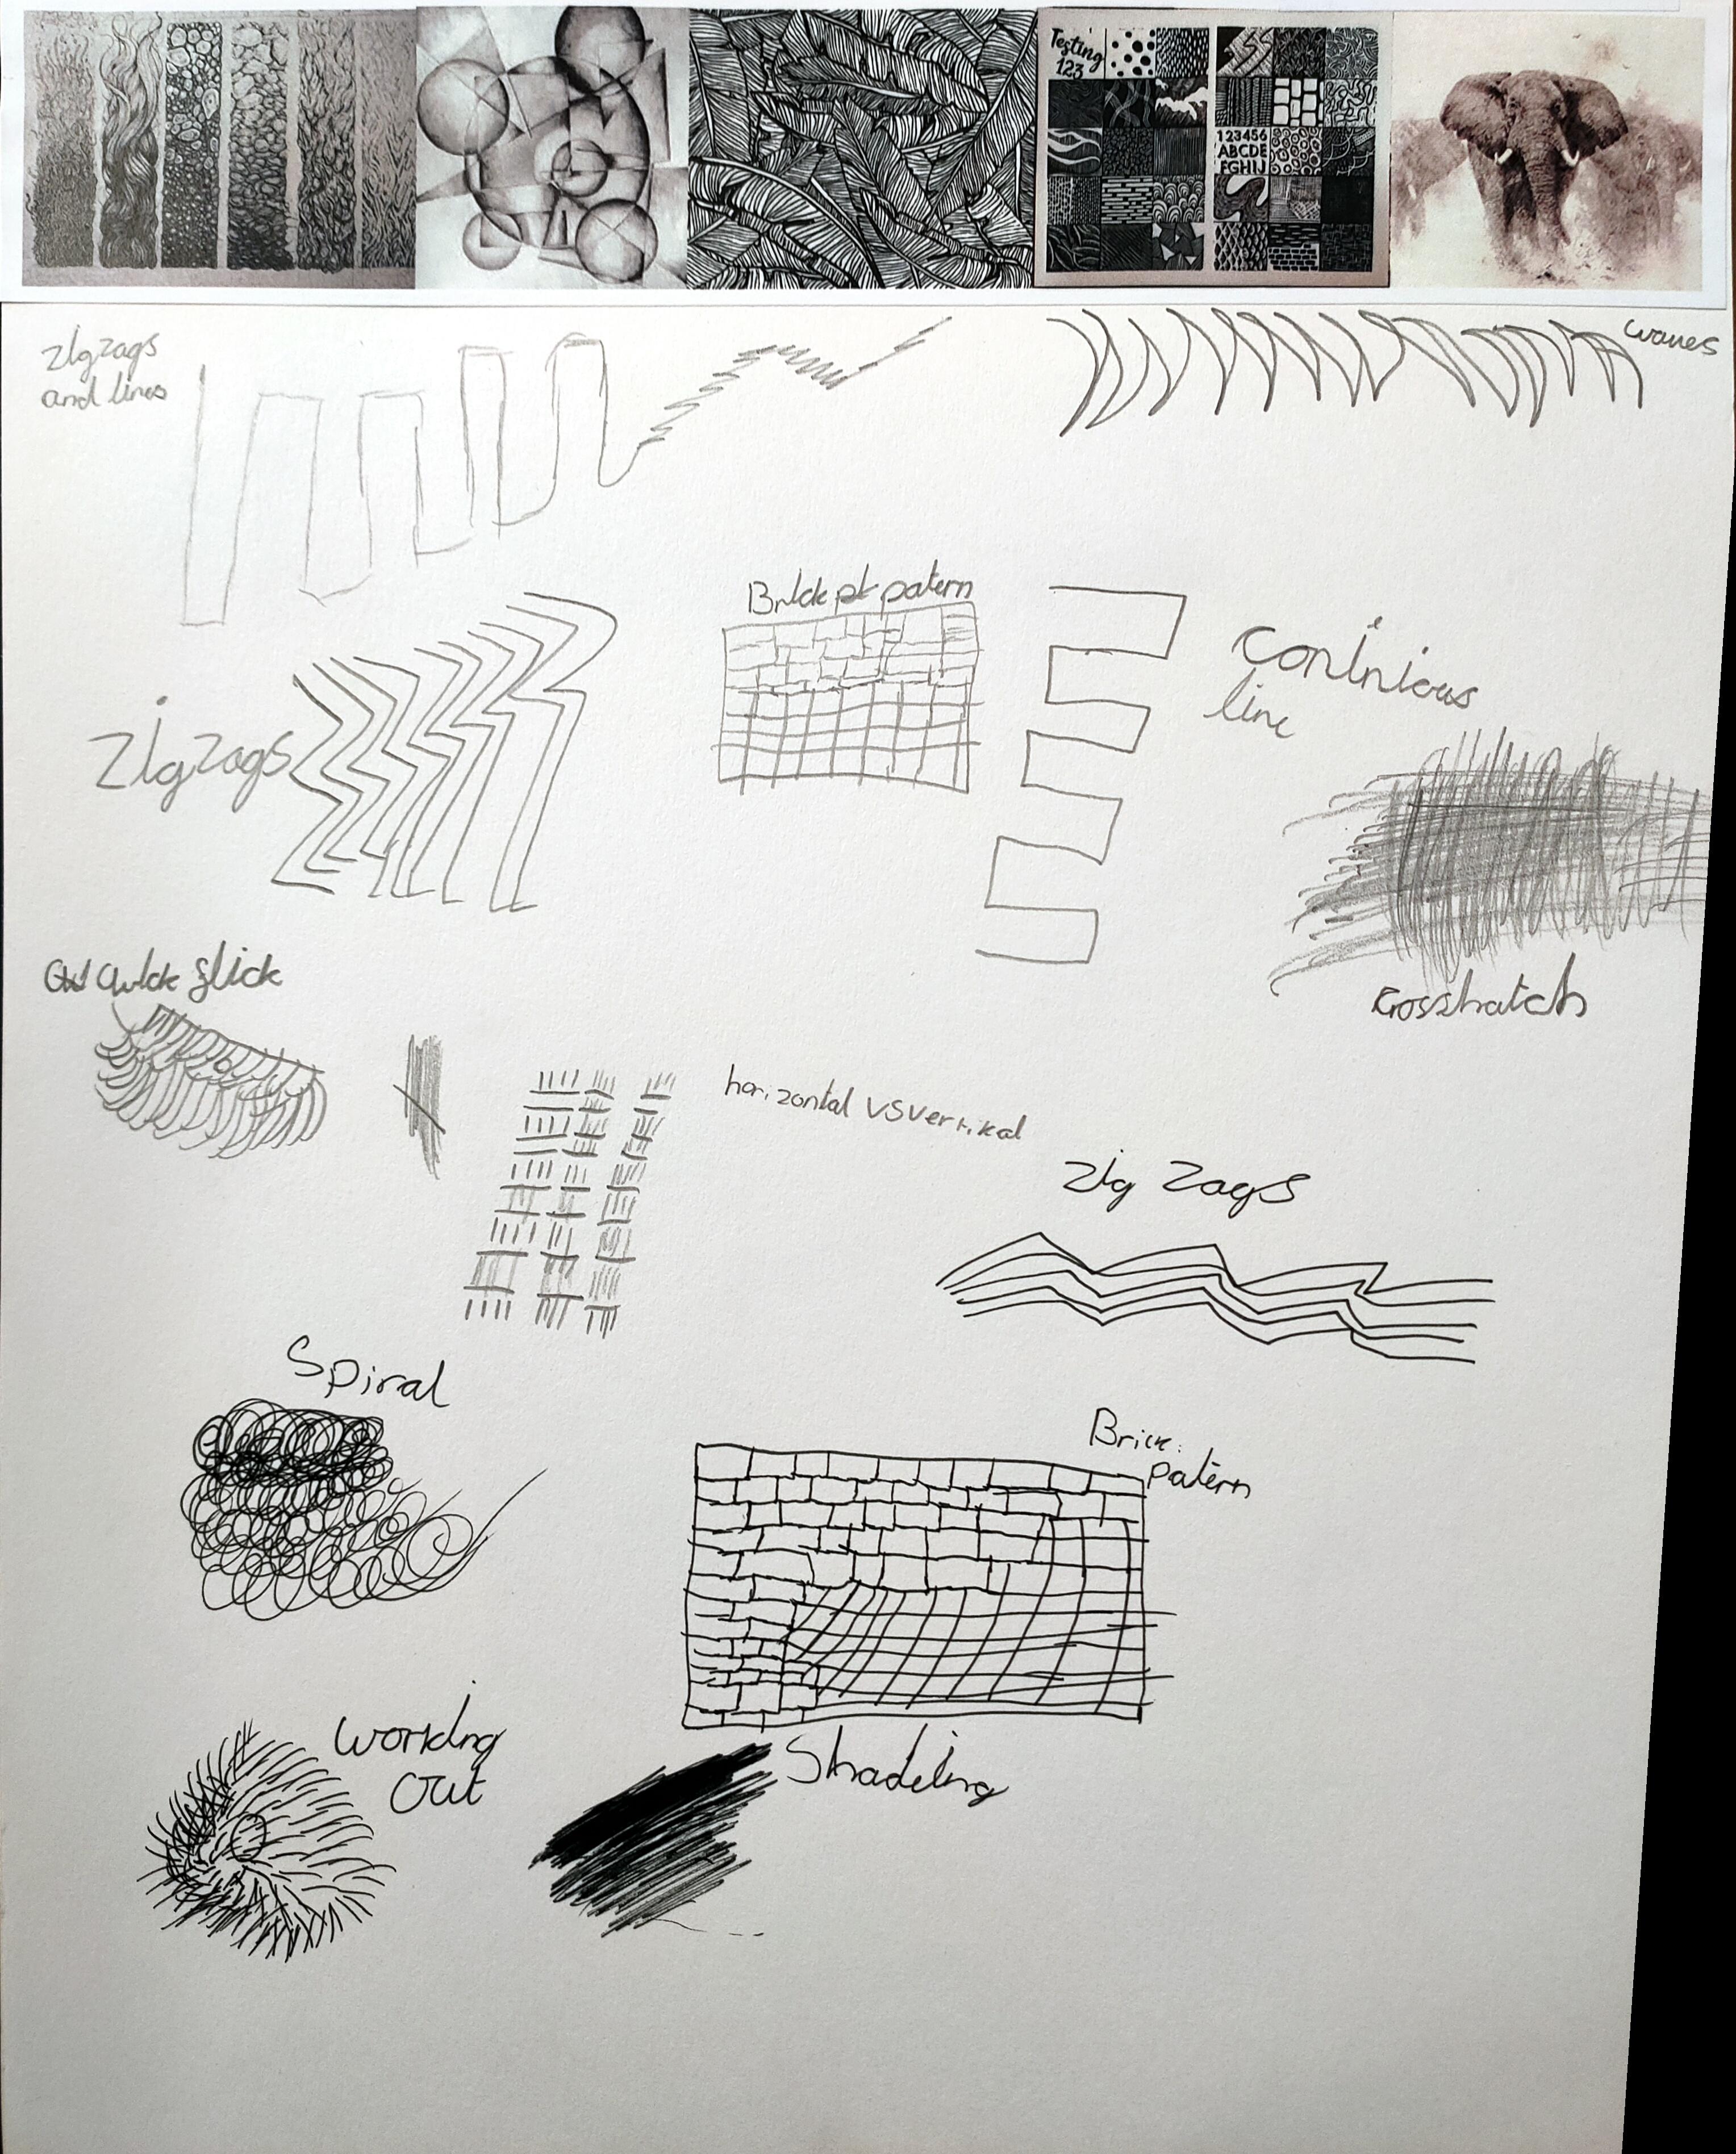 Testing
123
123456
ABCDE
FGHIJ
zigzags
and lines
waves
Brick pt patern
continious
line
zigzags
Quick flick
Crosshatch
horizontal VS Vertikal
zig zags
Spiral
Brick
patern
Working
Out
Shadeing